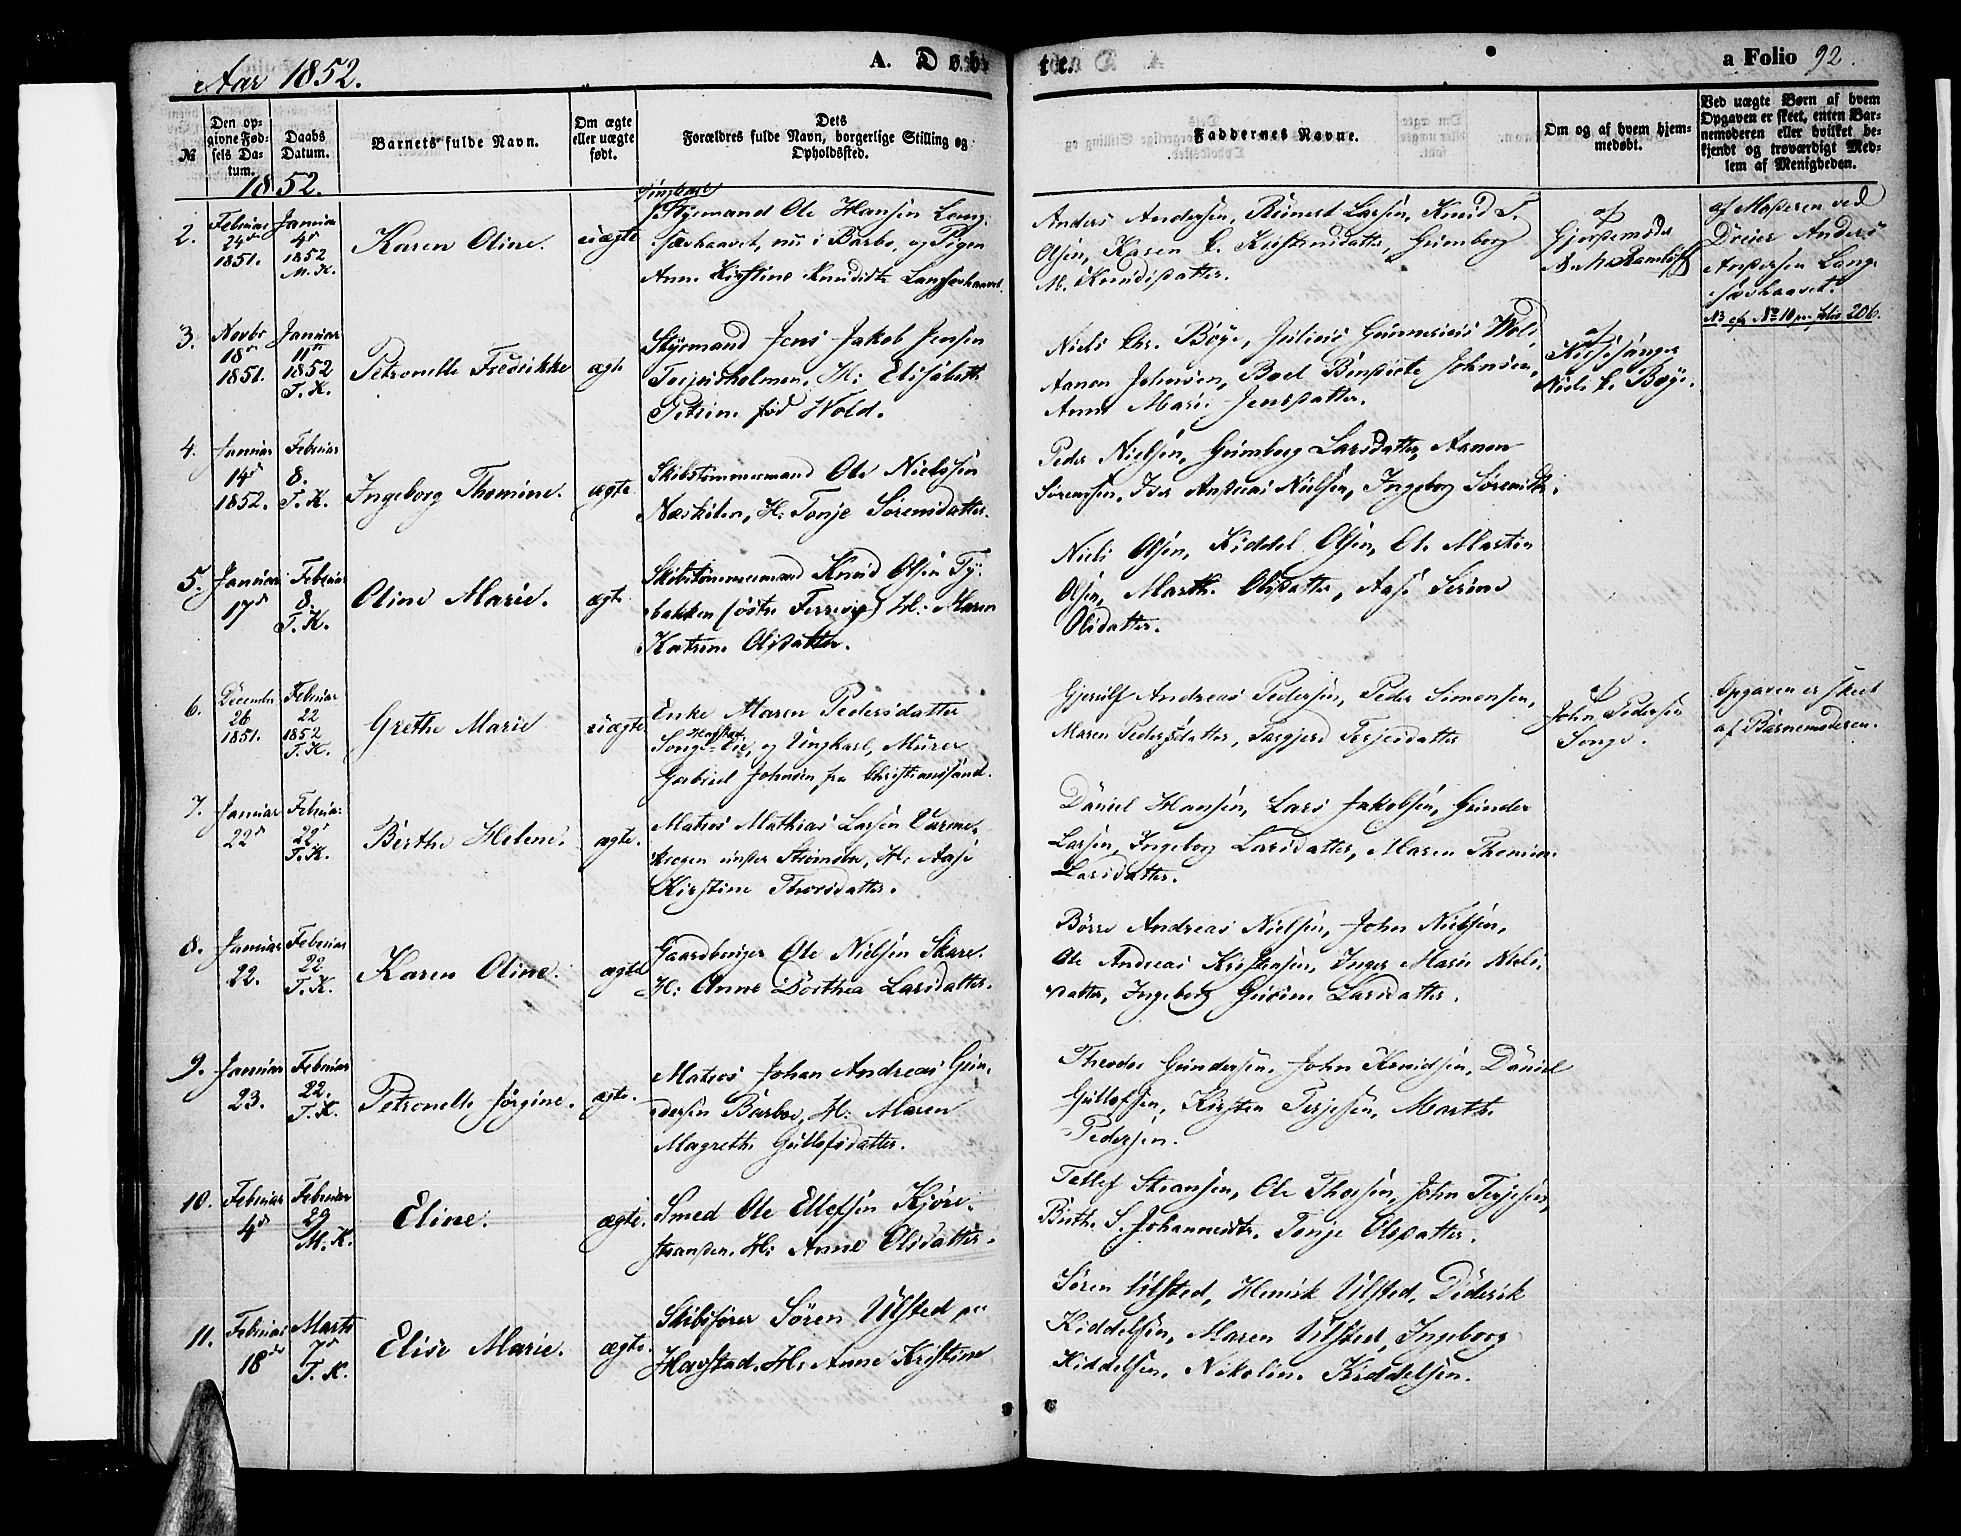 Aar 1852.
A. Døbte.
a Folio 92.
№
Den opgivne Fødsels Datum.
Daabs Datum.
Barnets fulde Navn.
Om ægte eller uægte født.
Dets Forældres fulde Navn, borgerlige Stilling og Opholdssted.
Faddernes Navne.
Om og af hvem hjemmedøbt.
Ved uægte Børn af hvem
Opgaven er skeet, enten Bar-
nemoderen eller hvilket be-
kjendt og troværdigt Med-
lem af Menigheden.
1852.
2.
Februar
24de
1851.
Januar
4de
1852
M. K.
Karen Oline.
uægte
Styrmand Ole Hansen Lang-
sævhaavet, nu i Barbo, og Pigen
Anne Kirstine Knudsdtr Langsævhaavet.
Anders Andersen, Reinert Larsen, Knud T.
Olsen, Karen E. Kirstensdatter, Gunborg
M. Knudsdatter.
af
Gjordemoder
af Moderen ved
Dreier Anders
Andersen Lang-
sævhaavet.
NB cfr No 10 pa folio 206.
3.
Novbr
18de
1851.
Januar
11te
1852
T. K.
Petronelle Fredrikke
ægte
Styrmand Jens Jakob Jensen
Terjeisholmen, H: Elisabeth
Petrine fød Wold.
Niels Chr. Bøye, Julius Gunnerius Wold,
Aanon Johnsen, Boel Bendicte Johnsen,
Anne Marie Jensdatter.
af
Kirkesanger
Niels C. Bøye.
4.
Januar
14de
1852.
Februar
8.
T. K.
Ingeborg Thomine.
ægte
Skibstømmermand Ole Nielsen
Næskilen, H: Tonje Sørensdatter.
Peder Nielsen, Gunborg Larsdatter, Aanon
Sørensen, Iver Andreas Nielsen, Ingeborg Sørensdtr.
5.
Januar
17de
Februar
8.
T. K.
Oline Marie.
ægte
Skibstømmermand Knud Olsen Ty-
bakken (østre Færevig) H: Maren
Katrine Olsdatter.
Niels Olsen, Kiddel Olsen, Ole Martin
Olsen, Marthe Olsdatter, Aase Serine
Olsdatter.
6.
December
26
1851.
Februar
22
1852
T. K.
Grethe Marie
uægte
Enke Maren Pedersdatter
Songe-Eie, og Ungkarl, Murer
Gabriel Johnsen fra Christianssand.
Gjerulf Andreas Pedersen, Peder Simonsen,
Maren Pedersdatter, Torgjerd Terjesdatter
af
John Pedersen
Songe.
Opgaven er skeet
af Barnemoderen.
7.
Januar
22de
Februar
22de
T. K.
Birthe Helene.
ægte.
Matros Mathias Larsen Varme-
krogen under Strømsbo, H: Aase
Kirstine Thorsdatter.
Daniel Hansen, Lars Jakobsen, Gunder
Larsen, Ingeborg Larsdatter, Maren Thomine
Larsdatter.
8.
Januar
22.
Februar
22
T. K.
Karen Oline.
ægte
Gaardbruger Ole Nielsen Skare.
H: Anne Dorthea Larsdatter.
Børre Andreas Nielsen, John Nielsen,
Ole Andreas Kristensen, Inger Marie Niels-
datter, Ingeborg Gurine Larsdatter.
9.
Januar
23.
Februar
22.
T. K.
Petronelle Jørgine.
ægte.
Matros Johan Andreas Gun-
dersen Barbo, H: Maren
Magrethe Gullofsdatter.
Theodor Gundersen, John Knudsen, Daniel
Gullofsen, Kirsten Terjesen, Marthe
Pedersen.
10.
Februar
4de
Februar
29
M. K.
Eline.
ægte.
Smed Ole Ellefsen Kjøre-
stranden, H: Anne Olsdatter.
Tellef Stiansen, Ole Thorsen, John Terjesen,
Birthe S. Johannesdtr. Tonje Olsdatter.
11.
Februar
18de
Marts
7de
T. K.
Elise Marie.
ægte.
Skibsfører Søren Ulsted paa
Havstad, H: Anne Kristine
Søren Ulsted, Henrik Ulsted, Diderik
Kiddelsen, Maren Ulsted, Ingeborg
Kiddelsen, Nikoline Kiddelsen.